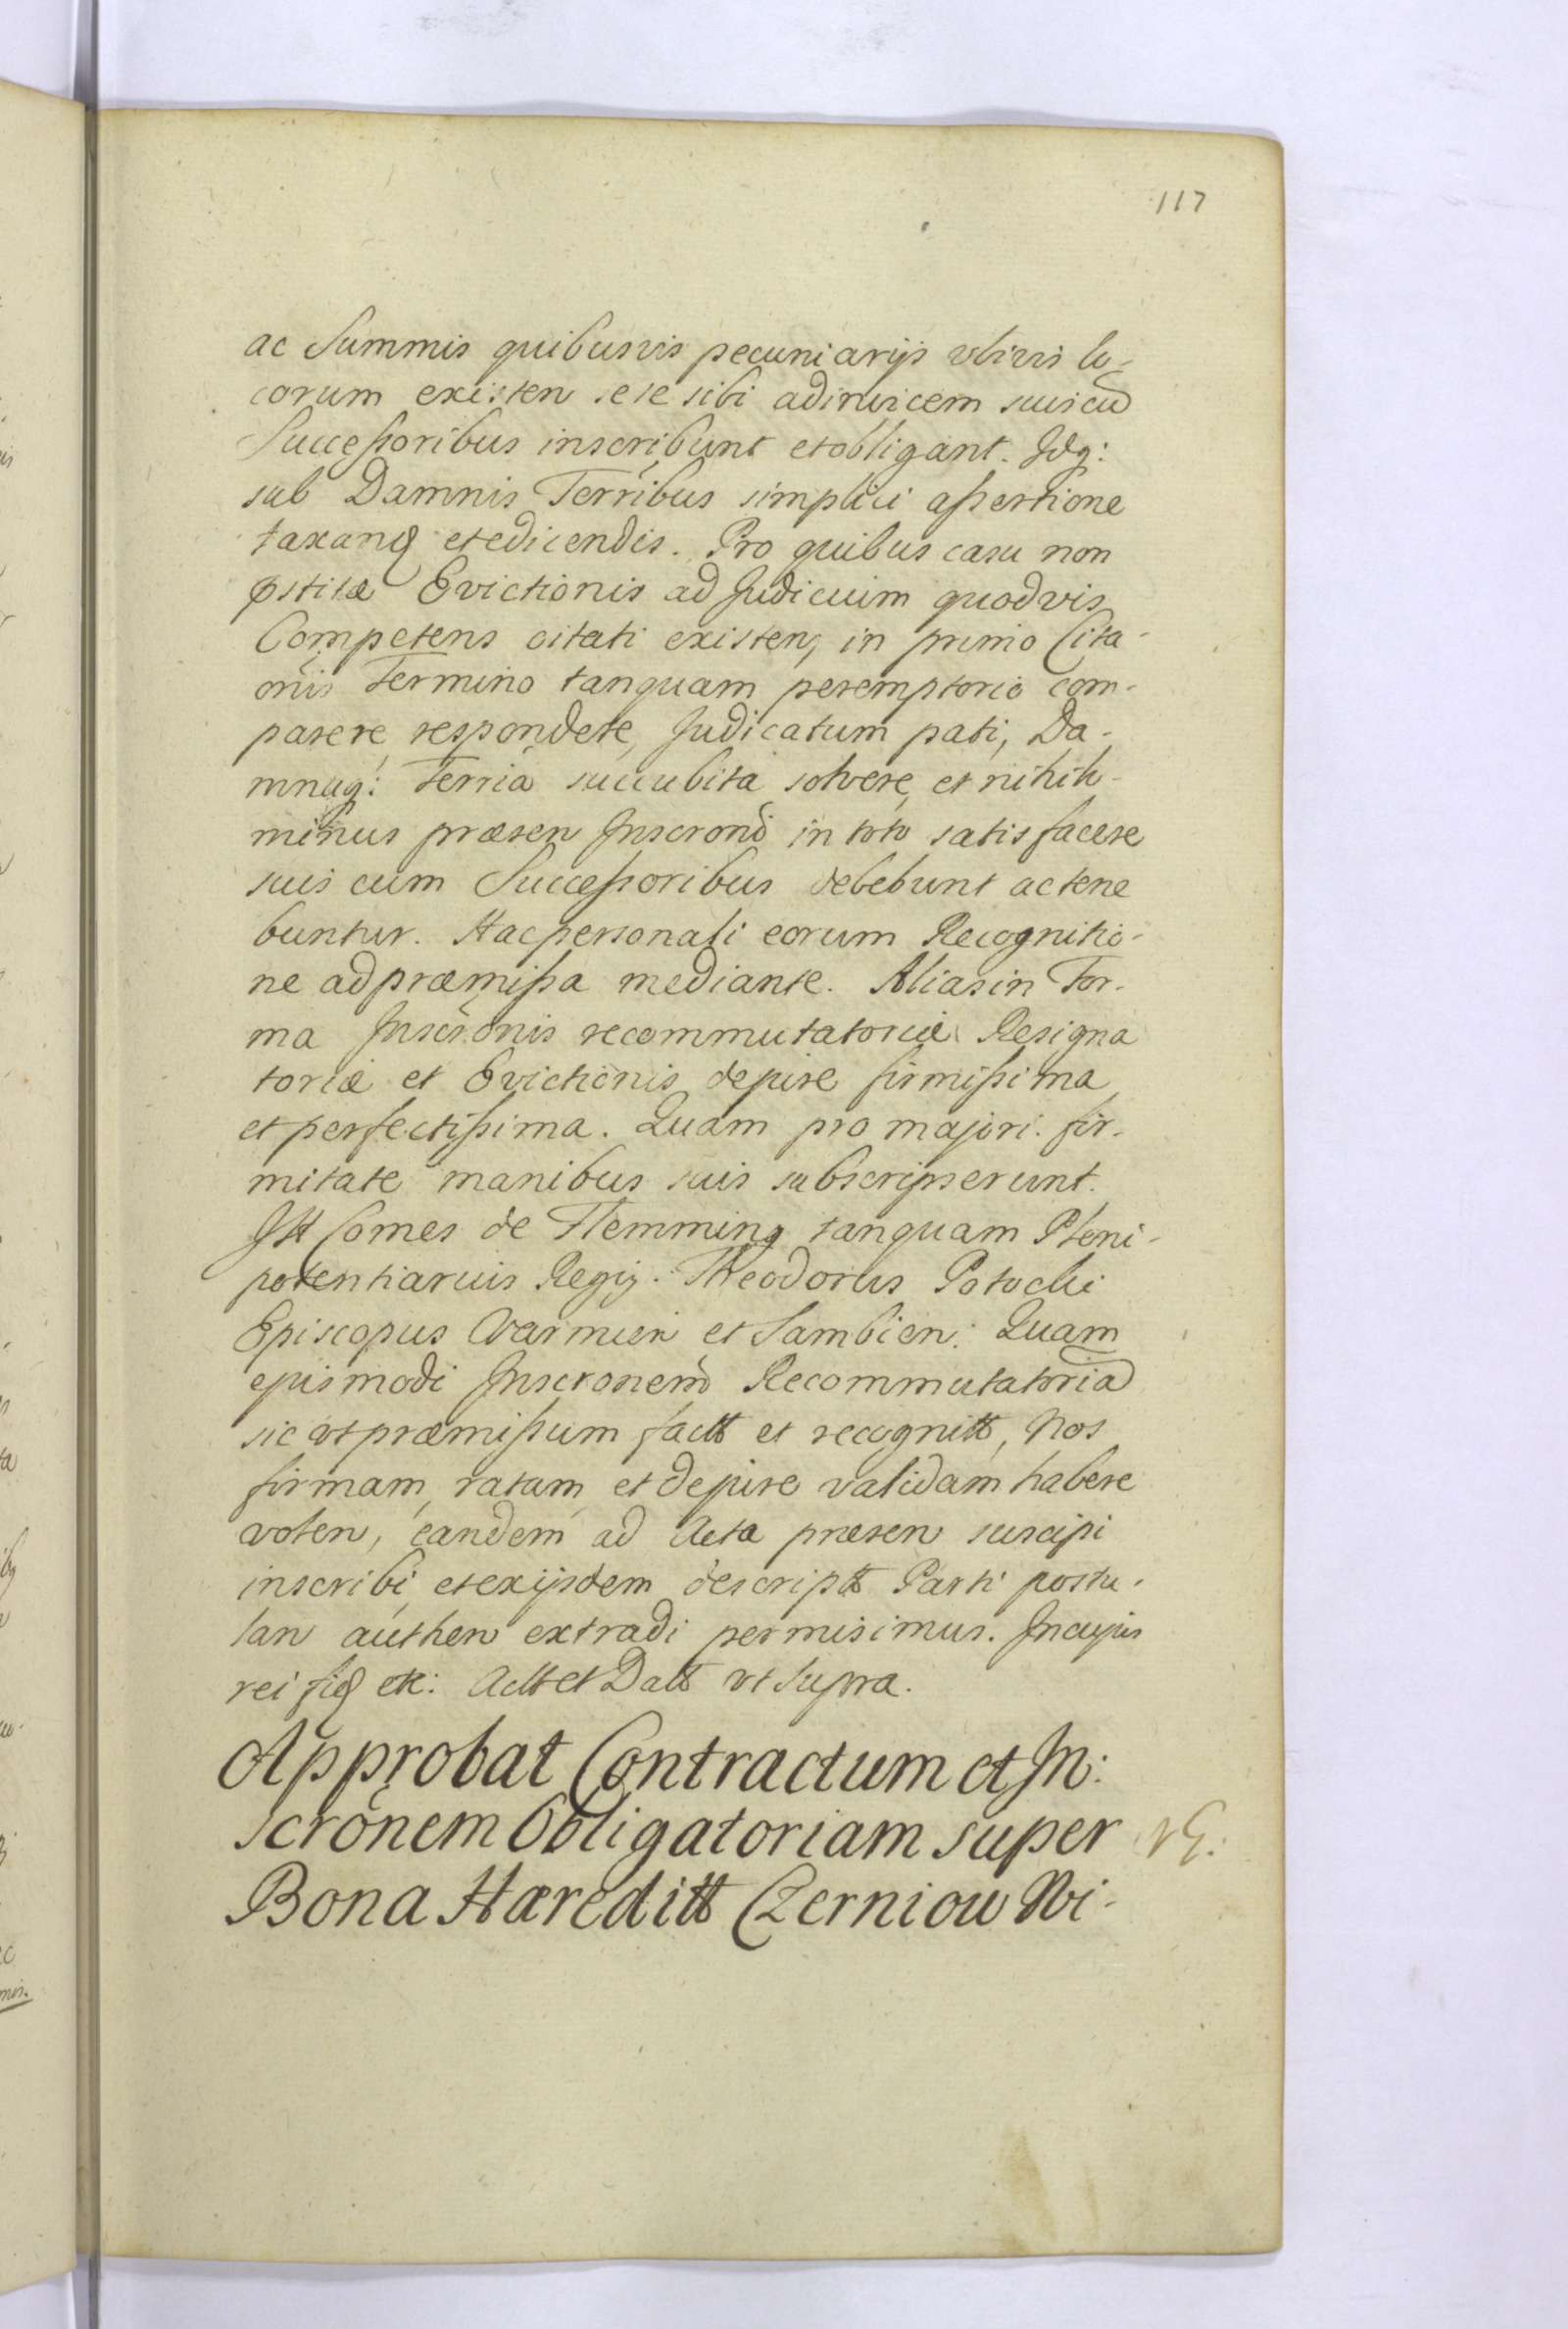 117
ac Summis quibusvis pecuniarijs vbivis lo-
corum existen sese sibi adinvicem suis cu
Successoribus inscribunt et obligant. Idq:
sub Damnis Terribus simplici assertione
taxand et edicendis. Pro quibus casu non
pstitæ Evictionis ad Judicium quodvis
Competens citati existen, in primo Cita-
onis Termino tanquam peremptorio com-
parere, respondere, Judicatum pati, Da-
mnaq: Terria succubita solvere, et nihilo-
minus præsen Inscroni in toto satisfacere
suis cum Successoribus debebunt ac tene
buntur. Hac personali eorum Recognitio-
ne ad præmissa mediante. Alias in For-
ma Inscronis recommutatoriæ Resigna
toriæ et Evictionis de jure firmissima
et perfectissima. Quam pro majori fir-
mitate manibus suis subscripserunt.
JH Comes de Flemming tanquam Pleni-
potentiarius Regig. Theodorus Potocki
Episcopus Varmien et Sambien: Quam
ejusmodi Inscronem Recommutatoria
sic vt præmissum factt et recognitt, Nos
firmam, ratam, et de jure validam habere
volen, eandem ad Acta præsen suscipi
inscribi, et ex ijsdem descriptt Parti postu-
lan authen extradi permisimus. In cujus
rei fid etc: Actt et Datt vt supra.
Approbat Contractum et In:
scronem Obligatoriam super
Bona Hæreditt Czerniow Wi-